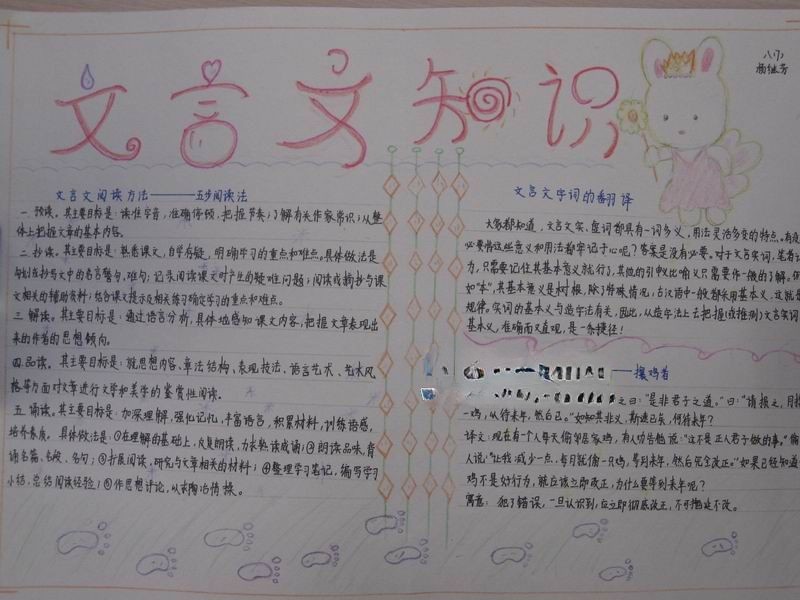 文言文知识
八(7)
杨继芳
文言文阅读方法———五步阅读法
一. 预读。其主要目标是: 读准字音, 准确停顿, 把握节奏; 了解有关作家常识; 从整
体上把握文章的基本内容。
二. 抄读。其主要目标是: 熟悉课文, 自学存疑, 明确学习的重点和难点。具体做法是
勾划或抄写文中的名言警句、难句; 记录阅读课文时产生的疑难问题; 阅读或摘抄与课
文相关的辅助资料; 结合课文提示及相关练习确定学习的重点和难点。
三. 解读。其主要目标是: 通过语言分析, 具体地感知课文内容, 把握文章表现出
来的作者的思想倾向。
四. 品读。其主要目标是: 就思想内容、章法结构、表现技法、语言艺术、艺术风
格等方面对文章进行文学和美学的鉴赏性阅读。
五. 诵读。其主要目标是: 加深理解, 强化记忆, 丰富语言, 积累材料, 训练语感,
培养素质。具体做法是: ①在理解的基础上, 反复朗读, 力求熟读成诵; ②朗读品味, 背
诵名篇、名段、名句; ③扩展阅读, 研究与文章相关的材料; ④整理学习笔记, 编写学习
小结, 总结阅读经验; ⑤作思想讨论, 从求陶冶情操。
文言文字词的翻译
大家都知道, 文言文实、虚词都具有一词多义, 用法灵活多变的特点。有没
必要将这些意义和用法都牢记于心呢? 答案是没有必要。对于文言实词, 笔者认
为, 只需要记住其基本意义就行了, 其他的引申义比喻义只需要作一般的了解。例
如"本", 其基本意义是树根, 除了特殊情况, 古汉语中一般都采用基本义, 这就是
规律。实词的基本义与造字法有关, 因此, 从造字法上去把握(或推测)文言实词
基本义, 准确而又直观, 是一条捷径!
——攘鸡者
之曰: "是非君子之道。"曰: "请损之, 月攘
一鸡, 以待来年, 然后已。"如知其非义, 斯速已矣, 何待来年?
译文: 现在有个人每天偷邻居家鸡, 有人劝告他说: "这不是正人君子做的事。"偷
人说: "让我减少一点, 每月就偷一只鸡, 等到来年, 然后完全改正。"如果已经知道
鸡不是好行为, 就应该立即改正, 为什么要等到来年呢?
寓意: 犯了错误, 一旦认识到, 应立即彻底改正, 不可拖延不改。